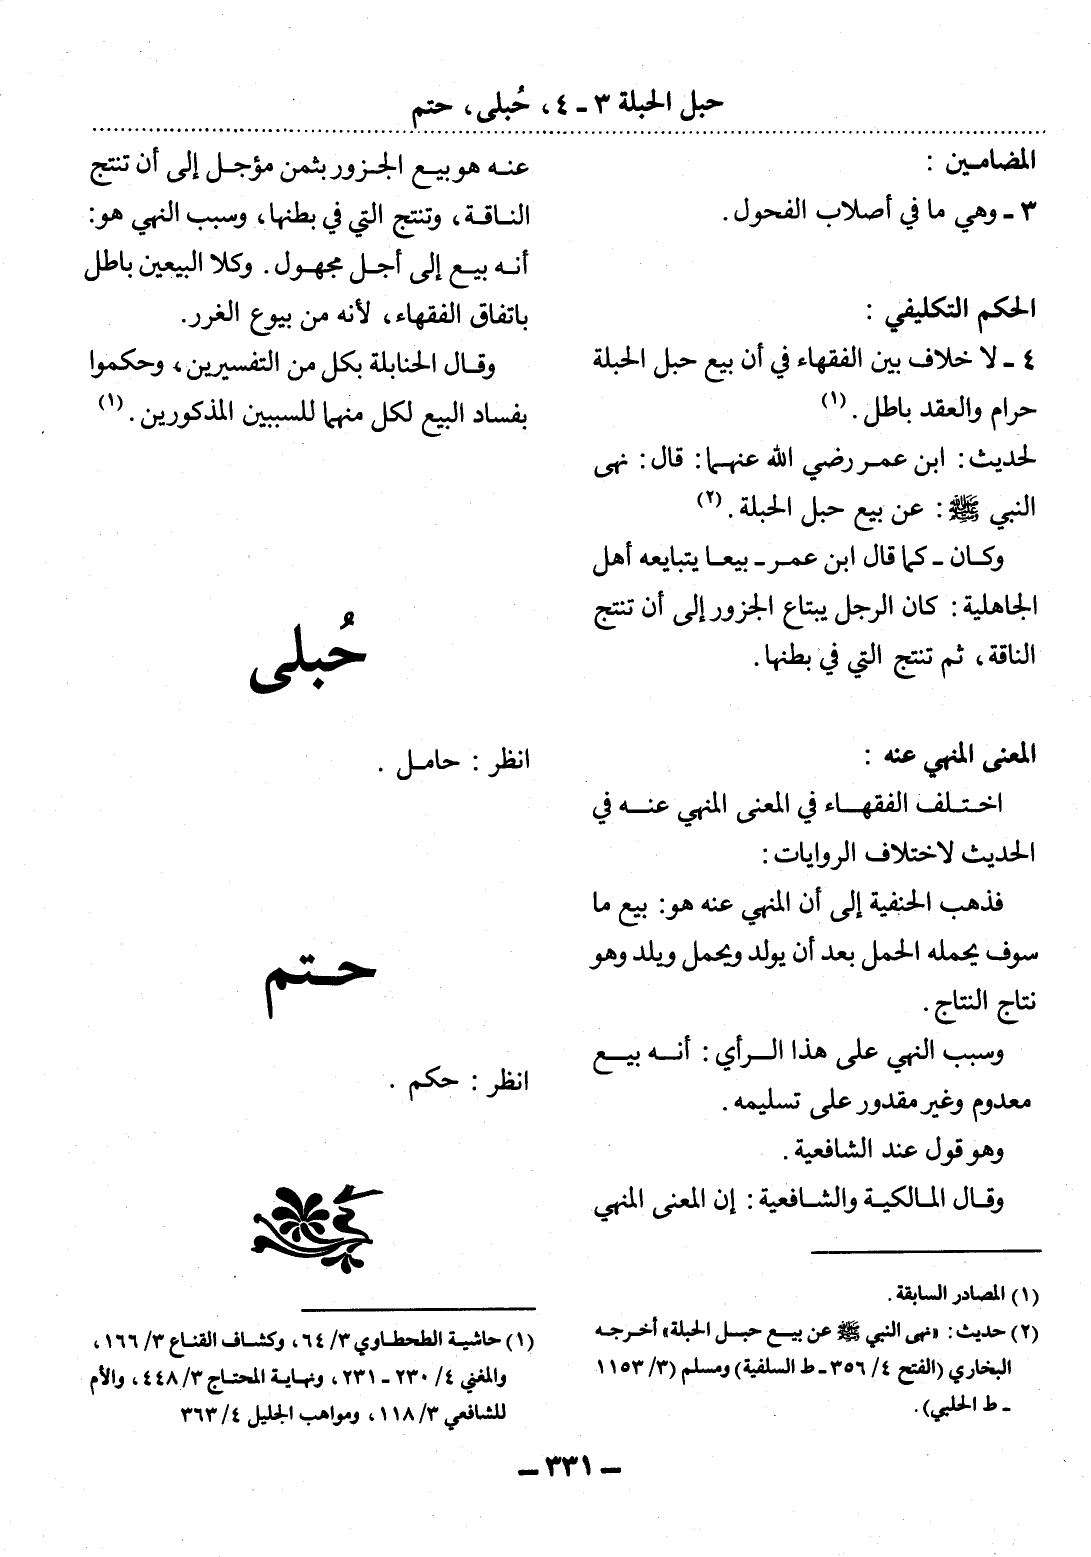 حبل الحبلة ٣ ـ ٤، حُبلى، حتم
المضامين :
٣ ـ وهي ما في أصلاب الفحول.
الحكم التكليفي :
٤ ـ لا خلاف بين الفقهاء في أن بيع حبل الحبلة
حرام والعقد باطل.(١)
لحديث: ابن عمر رضي الله عنهما: قال: نهى
النبي ﷺ: عن بيع حبل الحبلة.(٢)
وكان ـ كما قال ابن عمر ـ بيعا يتبايعه أهل
الجاهلية: كان الرجل يبتاع الجزور إلى أن تنتج
الناقة، ثم تنتج التي في بطنها.
المعنى المنهي عنه :
اختلف الفقهاء في المعنى المنهي عنه في
الحديث لاختلاف الروايات:
فذهب الحنفية إلى أن المنهي عنه هو: بيع ما
سوف يحمله الحمل بعد أن يولد ويحمل ويلد وهو
نتاج النتاج.
وسبب النهي على هذا الرأي: أنه بيع
معدوم وغير مقدور على تسليمه.
وهو قول عند الشافعية.
وقال المالكية والشافعية: إن المعنى المنهي
(١) المصادر السابقة.
(٢) حديث: «نهى النبي ﷺ عن بيع حبل الحبلة» أخرجه
البخاري (الفتح ٤/ ٣٥٦ ـ ط السلفية) ومسلم (٣/ ١١٥٣
ـ ط الحلبي).
عنه هو بيع الجزور بثمن مؤجل إلى أن تنتج
الناقة، وتنتج التي في بطنها، وسبب النهي هو:
أنه بيع إلى أجل مجهول. وكلا البيعين باطل
باتفاق الفقهاء، لأنه من بيوع الغرر.
وقال الحنابلة بكل من التفسيرين، وحكموا
بفساد البيع لكل منهما للسببين المذكورين.(١)
حُبلى
انظر : حامل .
حتم
انظر : حكم .
(١) حاشية الطحطاوي ٣/ ٦٤، وكشاف القناع ٣/ ١٦٦،
والمغني ٤/ ٢٣٠ ـ ٢٣١، ونهاية المحتاج ٣/ ٤٤٨، والأم
للشافعي ٣/ ١١٨، ومواهب الجليل ٤/ ٣٦٣
ـ ٣٣١ ـ